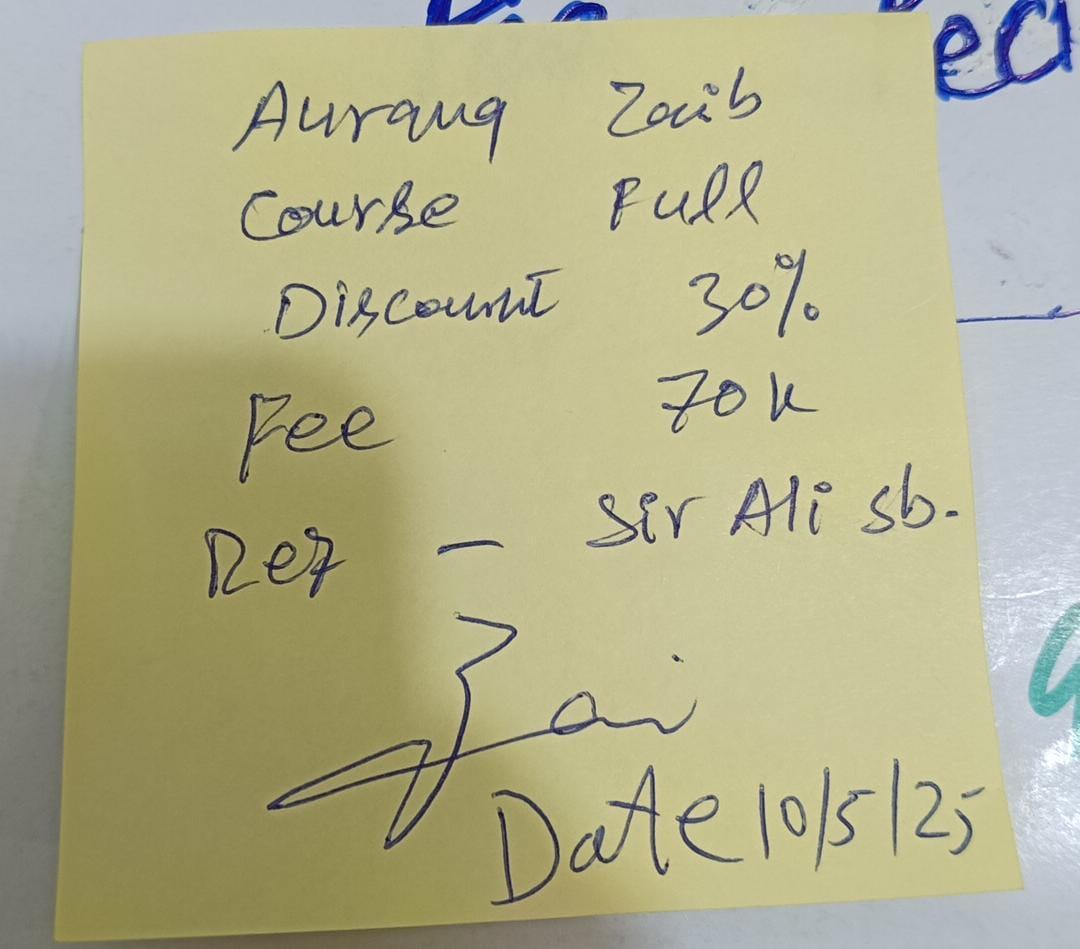 Aurang Zaib
Course Full
Discount 30%
Fee 70k
Ref - Sir Ali sb.
Zai
Date 10/5/25